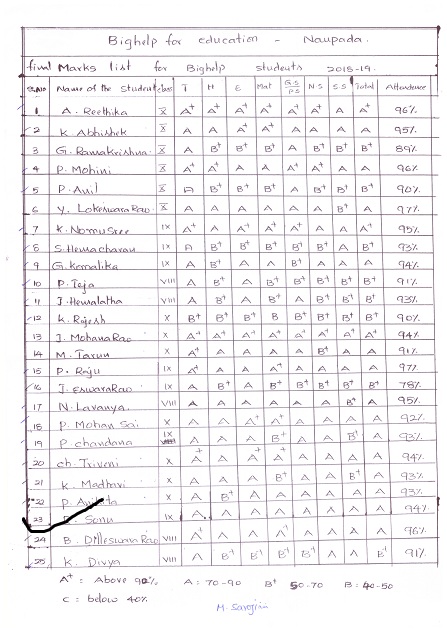 Bighelp for education - Naupada.
final Marks list for Bighelp students 2018-19.
S.No Name of the Student class T H E Mat G.S/P.S N.S S.S Total Attendance
1 A. Reethika X A+ A+ A+ A+ A+ A+ A A+ 96%
2 K. Abhishek X A A A+ A+ A A A A 95%
3 G. Ramakrishna X A B+ B+ B+ A B+ B+ B+ 89%
4 P. Mohini X A+ A A A+ A+ A+ A A 96%
5 P. Anil X A B+ B+ B+ A B+ B+ B+ 90%
6 Y. Lokeswara Rao X A A A A A A B+ A 97%
7 K. Nomu Sree IX A+ A A+ A+ A A A A+ 95%
8 S. Hemacharan IX A B+ B+ B+ B+ B+ A B+ 93%
9 G. Kemalika IX A A A B+ B+ A A A 94%
10 P. Teja VIII A B+ A B+ B+ A B+ B+ 91%
11 J. Hemalatha VIII A B+ A B+ A B+ B+ B+ 93%
12 K. Rajesh X B+ B+ B+ B B+ B+ B+ B+ 90%
13 J. Mohana Rao X A+ A+ A+ A+ A+ A+ A+ A+ 94%
14 M. Tarun X A A A A A B+ A A 91%
15 P. Raju IX A+ A A+ A+ A A A A 97%
16 J. Eswara Rao IX A B+ A B+ B+ B+ B+ B+ 78%
17 N. Lavanya. VIII A A A A A A B+ A 95%
18 P. Mohan Sai X A A A+ A+ A A A A 92%
19 P chandana IX A A A B+ A A B+ A 93%
20 ch. Triveni X A+ A A+ A+ A A A A 94%
21 K. Madhavi X A A A B+ A B+ B+ A 93%
22 P. X A B+ A A A A A A 93%
23 Sonu IX A A A A A A A A 94%
24 B. Dilleswara Rao VIII A A A A+ A A A A 96%
25 K. Divya VIII A B+ B+ B+ B+ A A B+ 91%
A+ : Above 90% A : 70-90 B+ 50-70 B : 40-50
C : below 40%
M. Sarojini